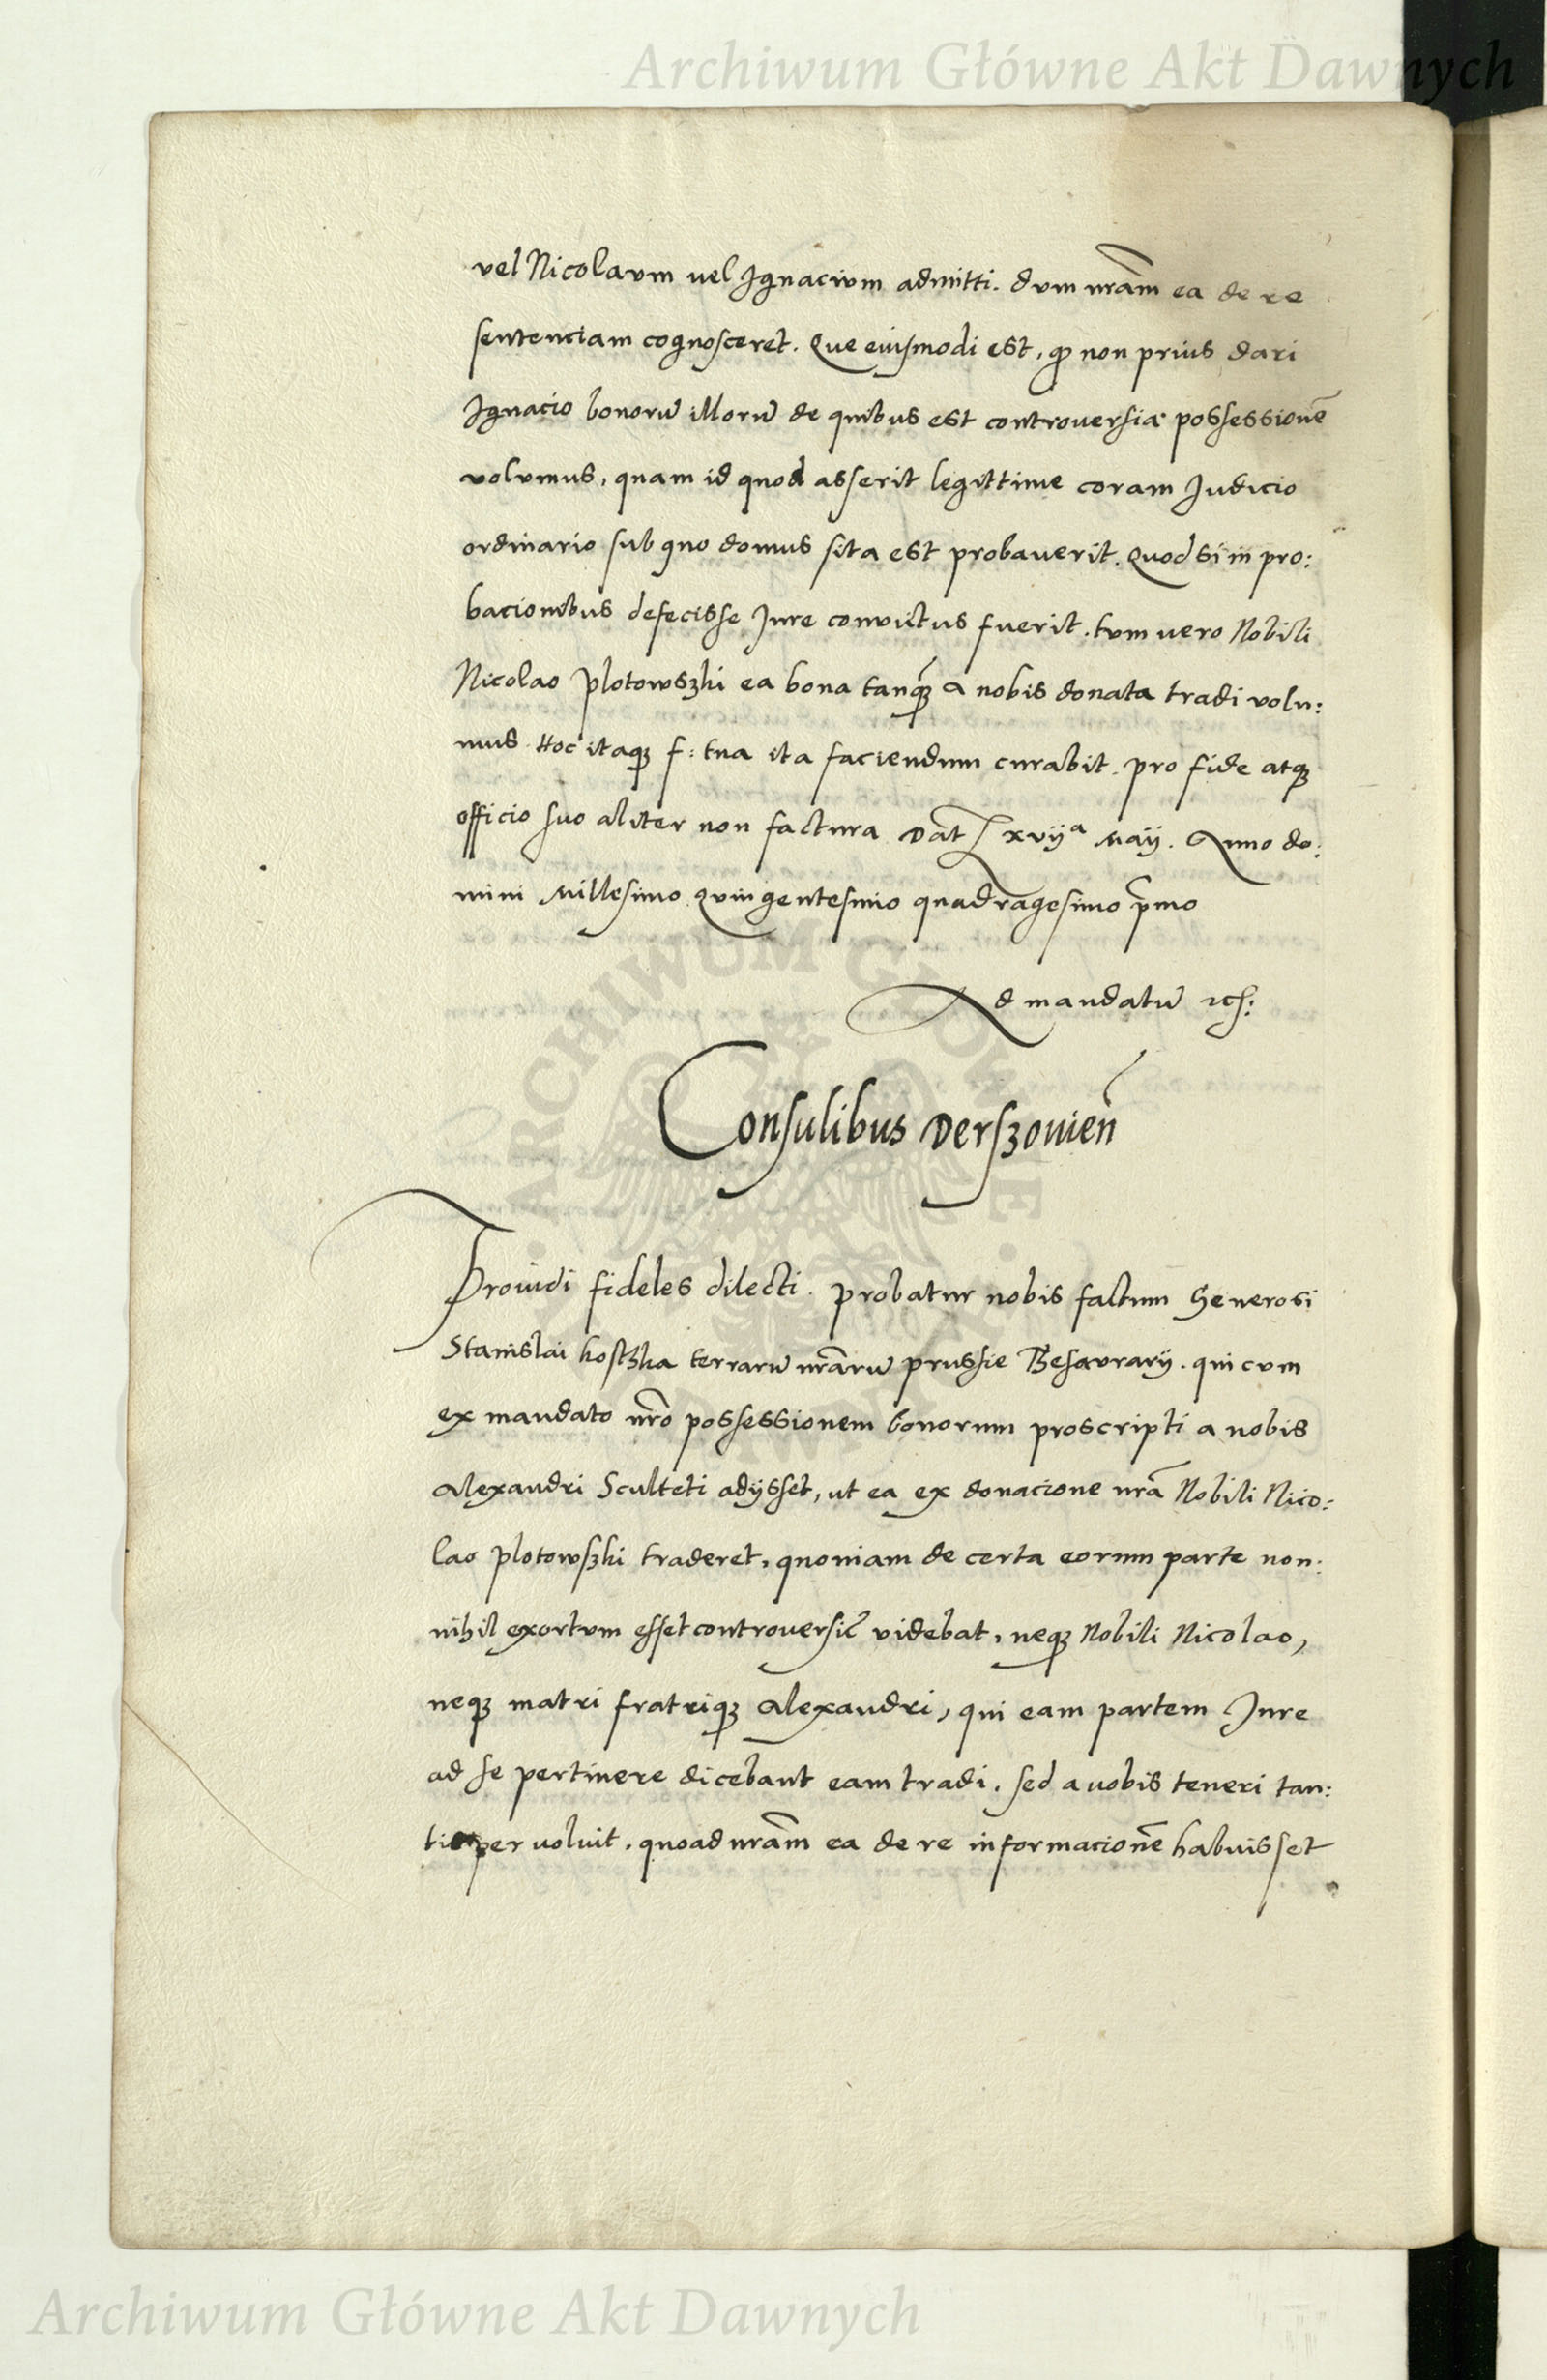 Archiwum Główne Akt Dawnych
vel Nicolaum vel Ignacium admitti. dum nr̃am ea de re
sentenciam cognosceret. Que eiusmodi est, qꝫ non prius dari
Ignacio bonorũ illorũ de quibus est controversia possessionẽ
volumus, quam id quod asserit legittime coram Judicio
ordinario sub quo domus sita est probaverit. Quod si in pro:
bacionibus defecisse Jure convictus fuerit. tum vero Nobili
Nicolao plotowszki ea bona tanq̃ꝫ a nobis donata tradi volu:
mus. Hoc itaqꝫ f: tua ita faciendum curabit. pro fide atqꝫ
officio suo aliter non factura Dat̃ xvijᵃ Maij. Anno do:
mini Millesimo Quingentesimo quadragesimo p̃mo
Ad mandatũ
Consulibus Derszovien̄
Providi fideles dilecti. probatur nobis factum Generosi
Stanislai kostzka terrarũ nr̃arũ prussie Thesaurarij. qui cum
ex mandato nr̃o possessionem bonorum proscripti a nobis
Alexandri Sculteti adijsset, ut ea ex donacione nr̃a Nobili Nico:
lao plotowszki traderet, quoniam de certa eorum parte non:
nihil exortum esset controversię videbat, neqꝫ Nobili Nicolao,
neqꝫ matri fratriqꝫ Alexandri, qui eam partem Jure
ad se pertinere dicebant eam tradi. sed a vobis teneri tan:
tisper voluit. quoad nr̃am ea de re informacionẽ habuisset
ARCHIWUM GŁÓWNE AKT DAWNYCH
Archiwum Główne Akt Dawnych